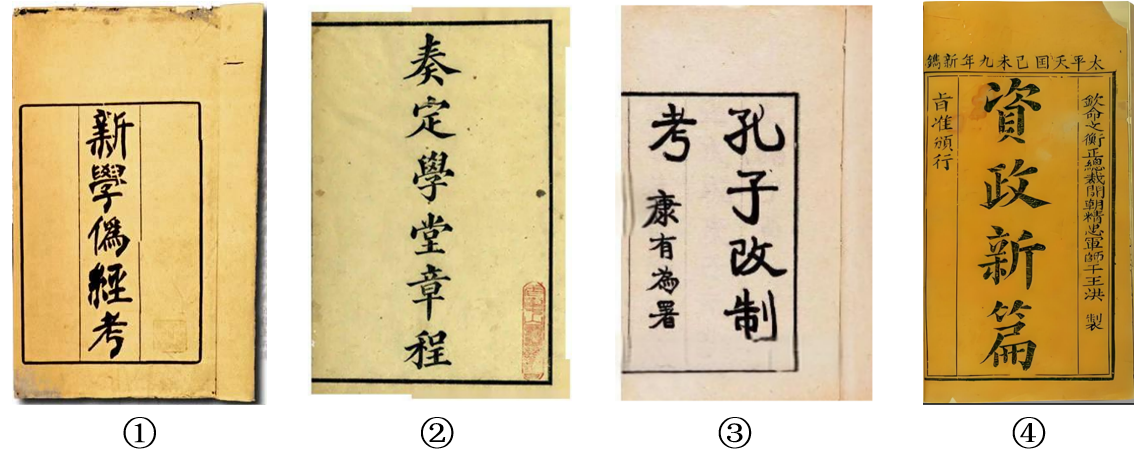 新學僞經考
①
奏定學堂章程
②
孔子改制
考
康有為署
③
太平天囯己未九年新鐫
欽命文衡正總裁開朝精忠軍師干王洪 製
資政新篇
旨准頒行
④